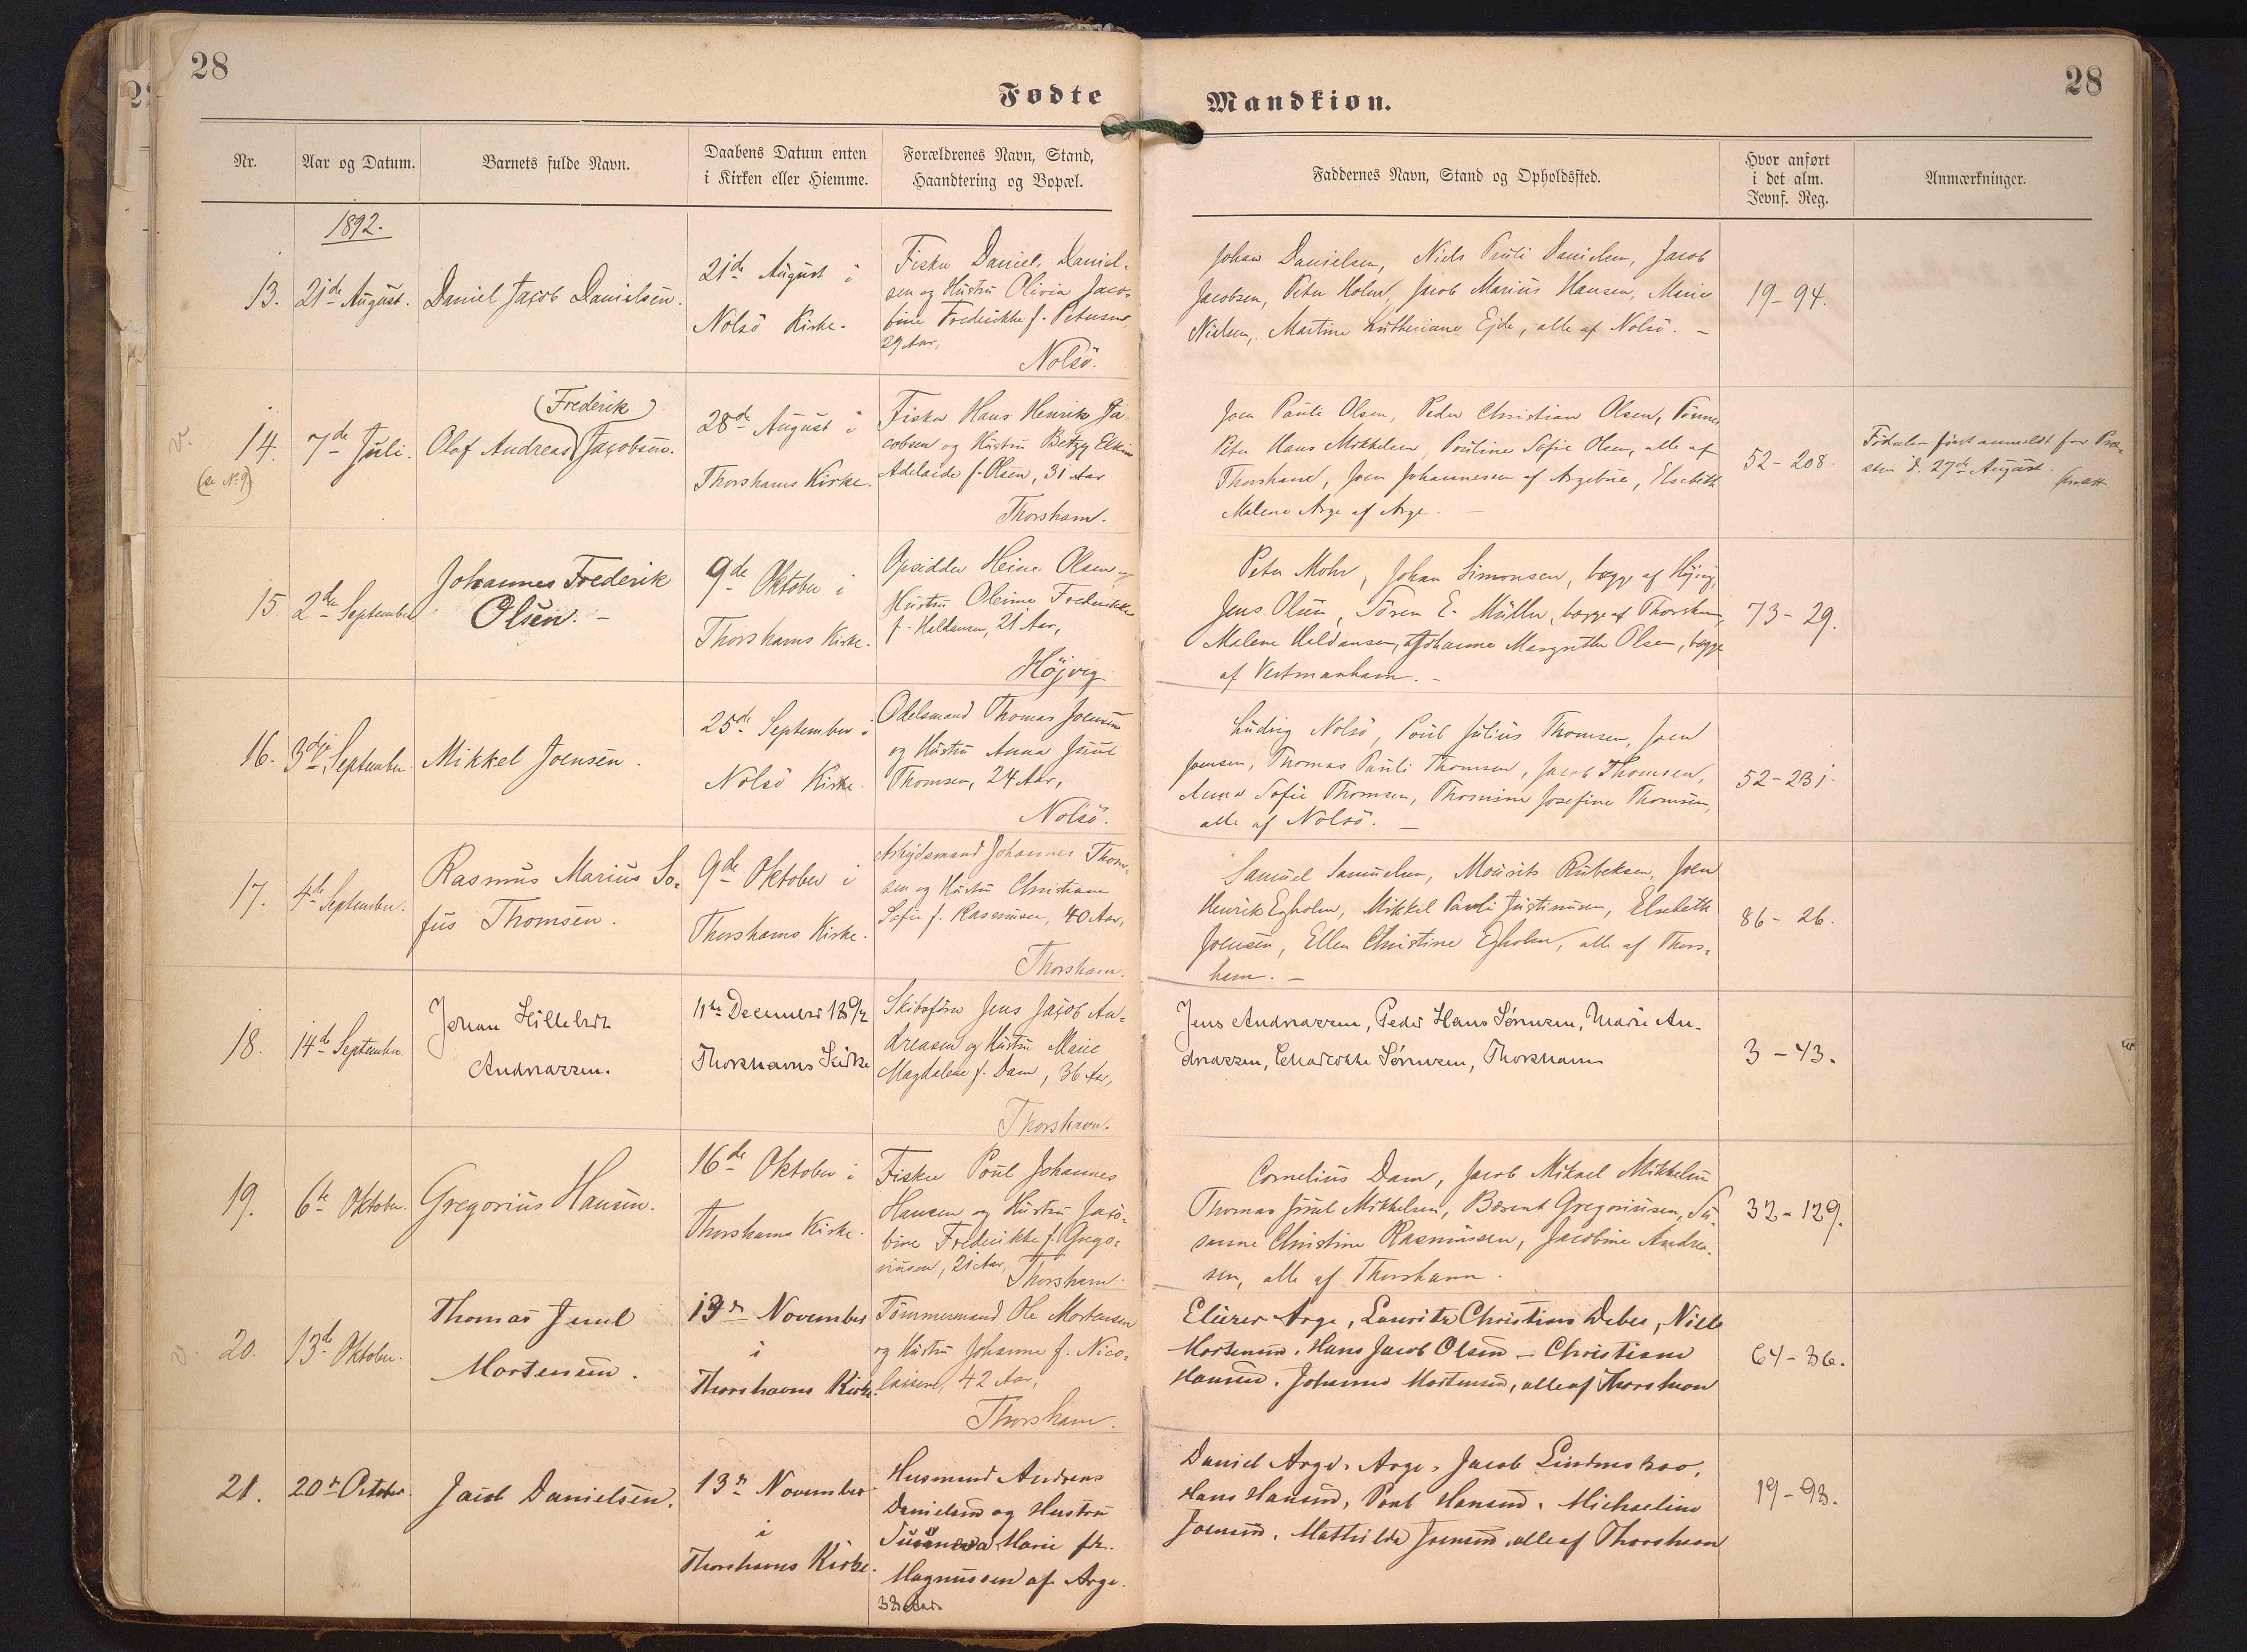 28
28
Fødte
Mandkiøn.
Nr.
Aar og Datum.
Barnets fulde Navn.
Daabens Datum enten
i Kirken eller Hiemme.
Forældrenes Navn, Stand,
Haandtering og Bopæl.
Faddernes Navn, Stand og Opholdssted.
Hvor anført
i det alm.
Jevnf. Reg.
Anmærkninger.
1892.
13.
21de August.
Daniel Jacob Danielsen.
21de August i
Nolsö Kirke.
Fisker Daniel Daniel-
sen og Hustru Olivia Jaco-
bine Frederikke f. Petersen,
29 Aar,
Nolsö.
Johan Danielsen, Niels Pauli Danielsen, Jacob
Jacobsen, Peter Holm, Jacob Marius Hansen, Marie
Nielsen, Martine Lutheriane Ejde, alle af Nolsö. -
19-94.
v.
14.
(se No 9)
7de Juli.
(Frederik)
Olaf Andreas Jacobsen.
28de August i
Thorshavns Kirke.
Fisker Hans Henrik Ja-
cobsen og Hustru Betzy
Adelaide f. Olsen, 31 Aar
Thorshavn.
Joen Pauli Olsen, Peder Christian Olsen,
Peter Hans Mikkelsen, Pouline Sofie Olsen, alle af
Thorshavn, Joen Johannesen af, Elsebeth
Malene Arge af Arge. -
52-208.
Födselen först anmeldt for Præ-
sten d. 27de August.
15.
2den September
Johannes Frederik
Olsen. -
9de Oktober i
Thorshavns Kirke.
Opsidder Heine Olsen og
Hustru Oleine Frederikke
f. Heldansen, 21 Aar,
Höjvig
Peter Mohr, Johan Simonsen, begge af Höjvig,
Jens Olsen, Sören E. Müller, begge af Thorshavn,
Malene Heldansen, Johanne Margrethe Olsen, begge
af Vestmanhavn. -
73-29.
16.
3die September.
Mikkel Joensen.
25de September i
Nolsö Kirke.
Odelsmand Thomas Joensen
og Hustru Anna Juul
Thomsen, 24 Aar,
Nolsö.
Ludvig Nolsö, Poul Julius Thomsen, Joen
Joensen, Thomas Pauli Thomsen, Jacob Thomsen,
Anna Sofie Thomsen, Thomine Josefine Thomsen,
alle af Nolsö. -
52-231.
17.
4de September.
Rasmus Marius So-
fus Thomsen.
9de Oktober i
Thorshavns Kirke.
Arbejdsmand Johannes Thom-
sen og Hustru Christiane
Sofie f. Rasmusen, 40 Aar,
Thorshavn.
Samuel Samuelsen, Mourits Rubeksen, Joen
Henrik Egholm, Mikkel Pauli Justinusen, Elsebeth
Joensen, Ellen Christine Egholm, alle af Thors-
havn. -
86-26.
18.
14de September.
Johan Hillebrdt
Andreassen.
11te December 1892
Thorshavns Kirke
Skibsförer Jens Jacob An-
dreasen og Hustru Marie
Magdalene f. Dam, 36 Aar,
Thorshavn.
Jens Andreassen, Peder Hans Sörensen, Marie An-
dreassen, Sörensen, Thorshavn
3-43.
19.
6te Oktober.
Gregorius Hansen.
16de Oktober i
Thorshavns Kirke.
Fisker Poul Johannes
Hansen og Hustru Jaco-
bine Frederikke f. Grego-
riusen, 21 Aar,
Thorshavn.
Cornelius Dam, Jacob Mikael Mikkelsen
Thomas Juul Mikkelsen, Berent Gregoriusen, Su-
sanne Christine Rasmussen, Jacobine Andrea-
sen, alle af Thorshavn.
32-129.
v.
20.
13de Oktober.
Thomas Juul
Mortensen.
13de November
i
Thorshavns Kirke.
Tömmermand Ole Mortensen
og Hustru Johanne f. Nico-
laisen, 42 Aar,
Thorshavn.
Eliezer Arge, Lauritz Christius Debes, Niels
Mortensen, Hans Jacob Olsen - Christiane
Hansen. Johanne Mortensen, alle af Thorshavn
64-36.
21.
20de October.
Jacob Danielsen.
13de November
i
Thorshavns Kirke.
Husmand Andreas
Danielsen og Hustru
Susanna Marie fd.
Magnussen af Arge.
38 Aar.
Daniel Arge, Arge, Jacob Lindenskov,
Hans Hansen, Poul Hansen, Michaeline
Joensen. Mathilda Joensen, alle af Thorshavn
19-98.